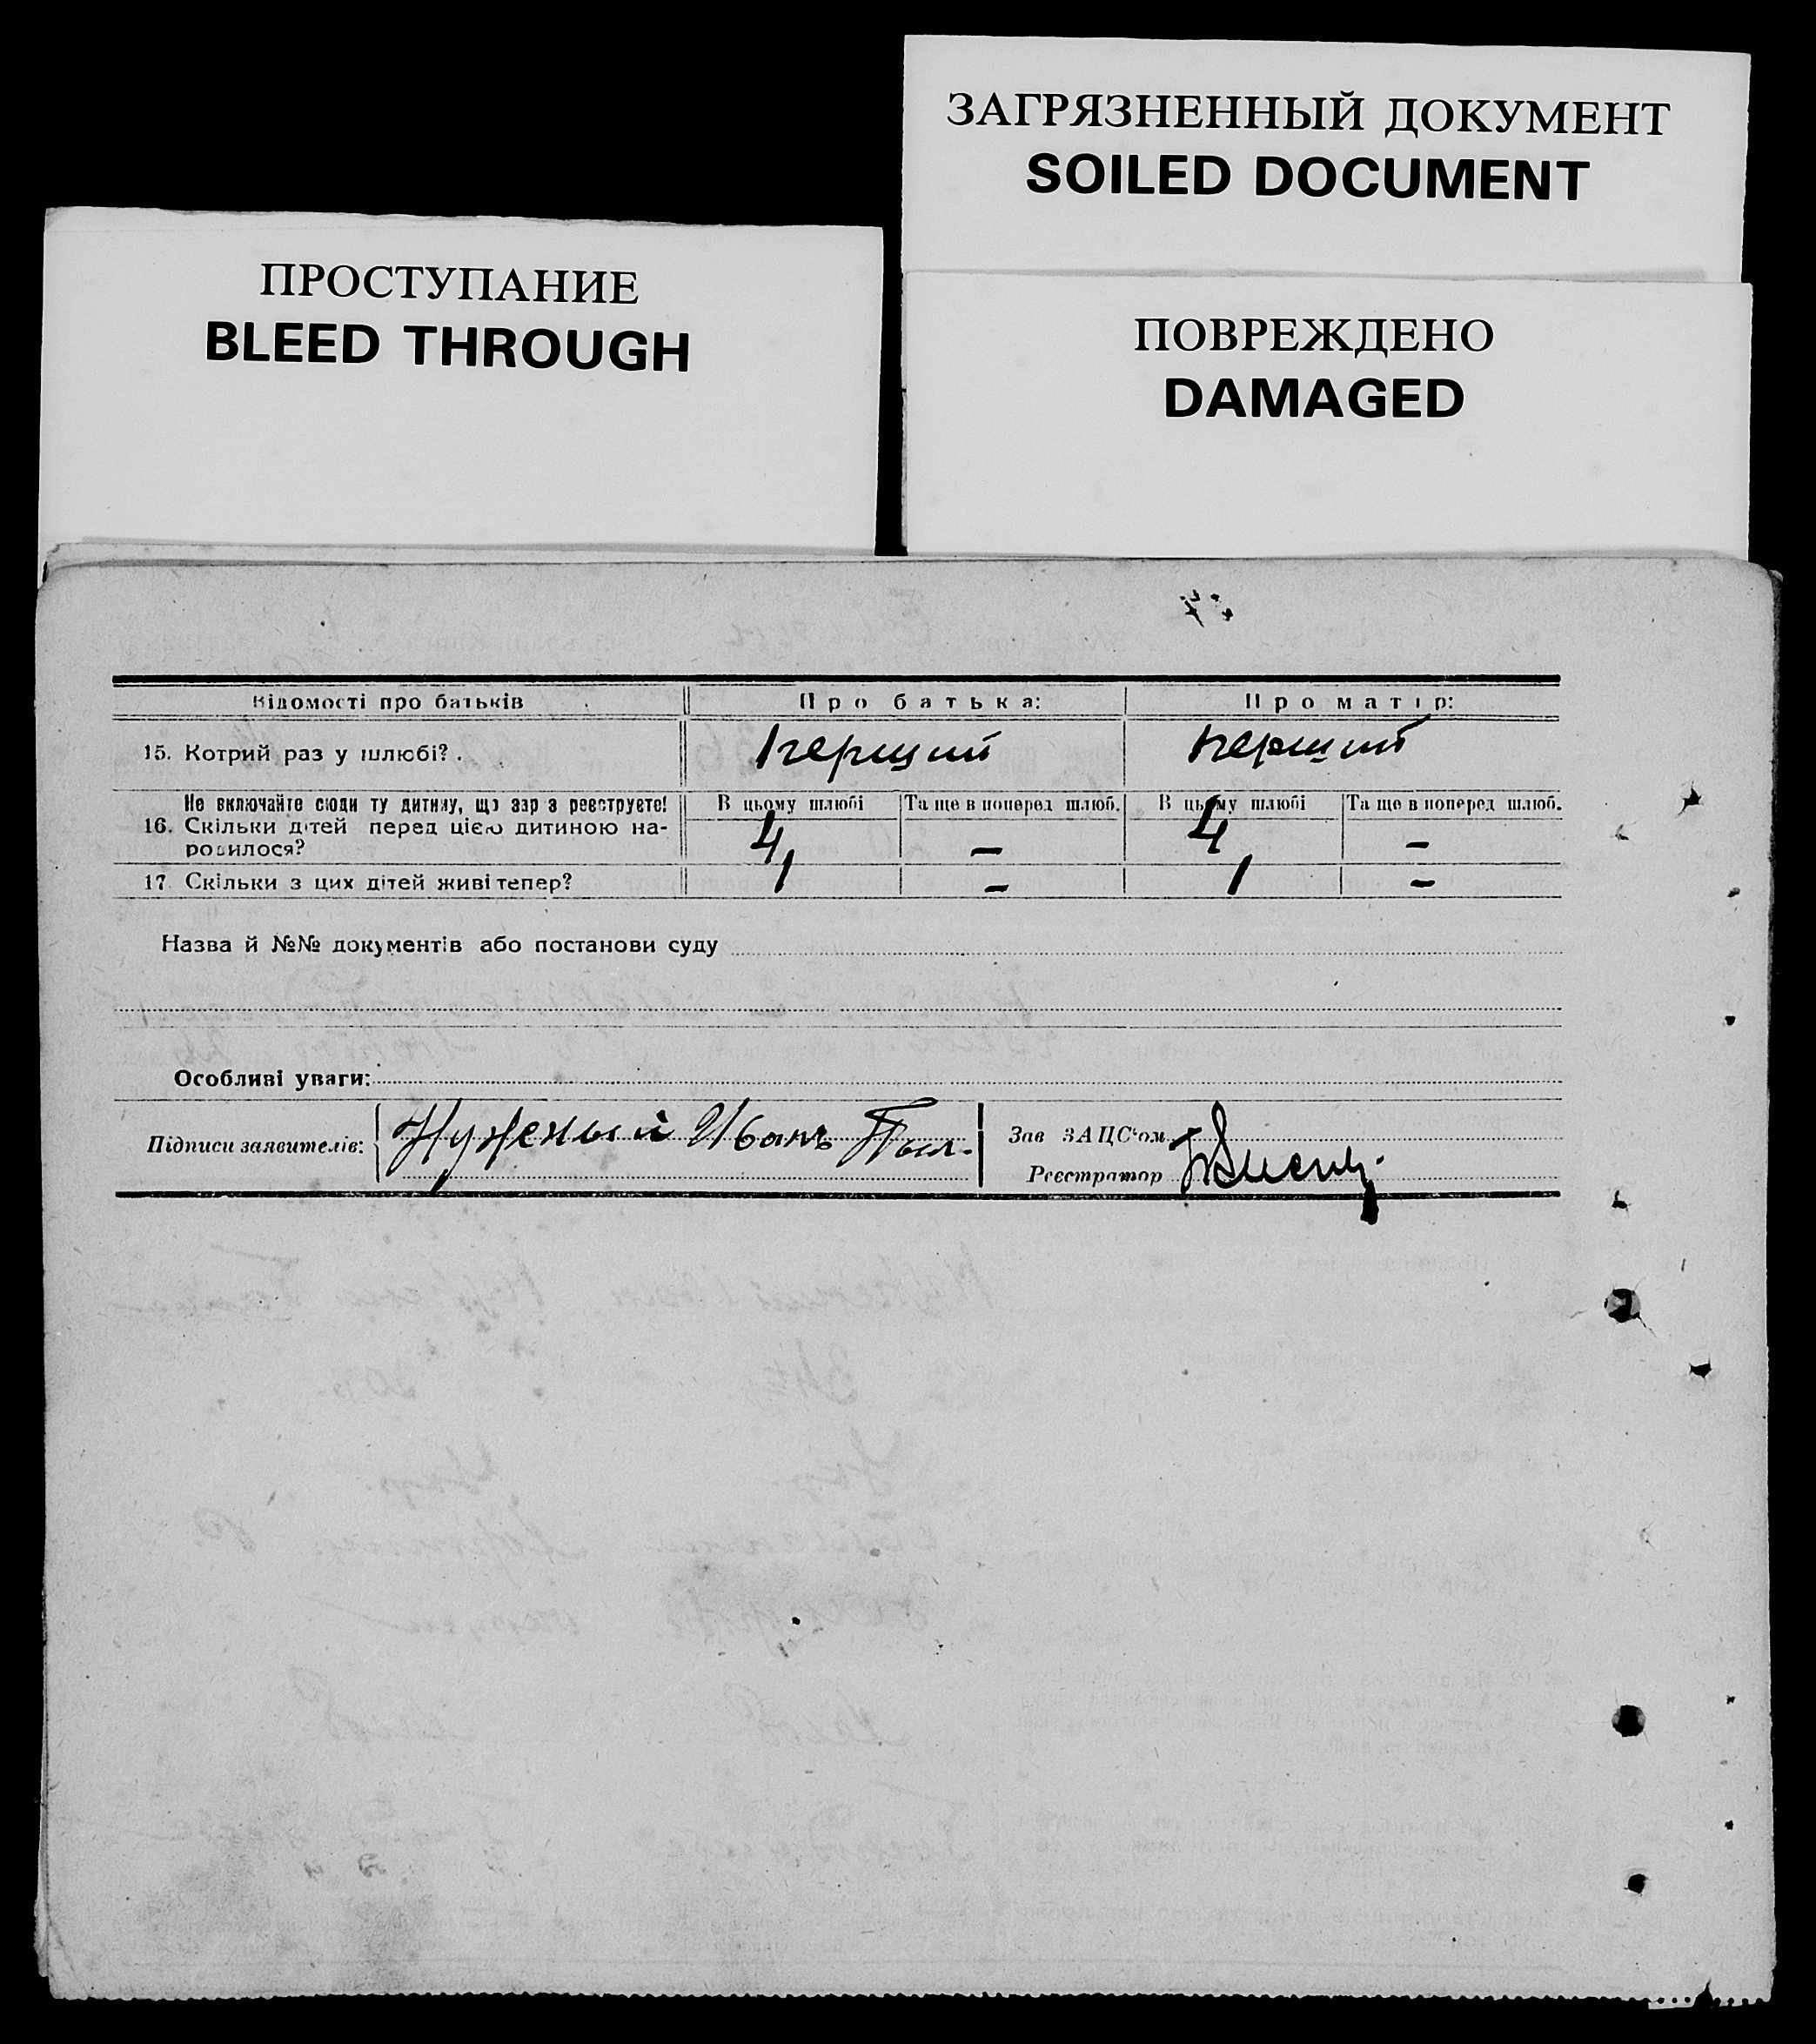 ЗАГРЯЗНЕННЫЙ ДОКУМЕНТ
SOILED DOCUMENT
ПРОСТУПАНИЕ
BLEED THROUGH
ПОВРЕЖДЕНО
DAMAGED
Відомості про батьків Про батька: Про матір:
15. Котрий раз у шлюбі? . перший перший
Не включайте сюди ту дитину, що зараз реєструєте! В цьому шлюбі Та ще в поперед шлюб. В цьому шлюбі Та ще в поперед шлюб.
16. Скільки дітей перед цією дитиною на-
родилося? 4 — 4 —
17 Скільки з цих дітей живі тепер? 1 — 1 —
Назва й №№ документів або постанови суду
Особливі уваги:
Підписи заявителів: Нуженый Иванъ Зав ЗАЦС'ом
Реєстратор